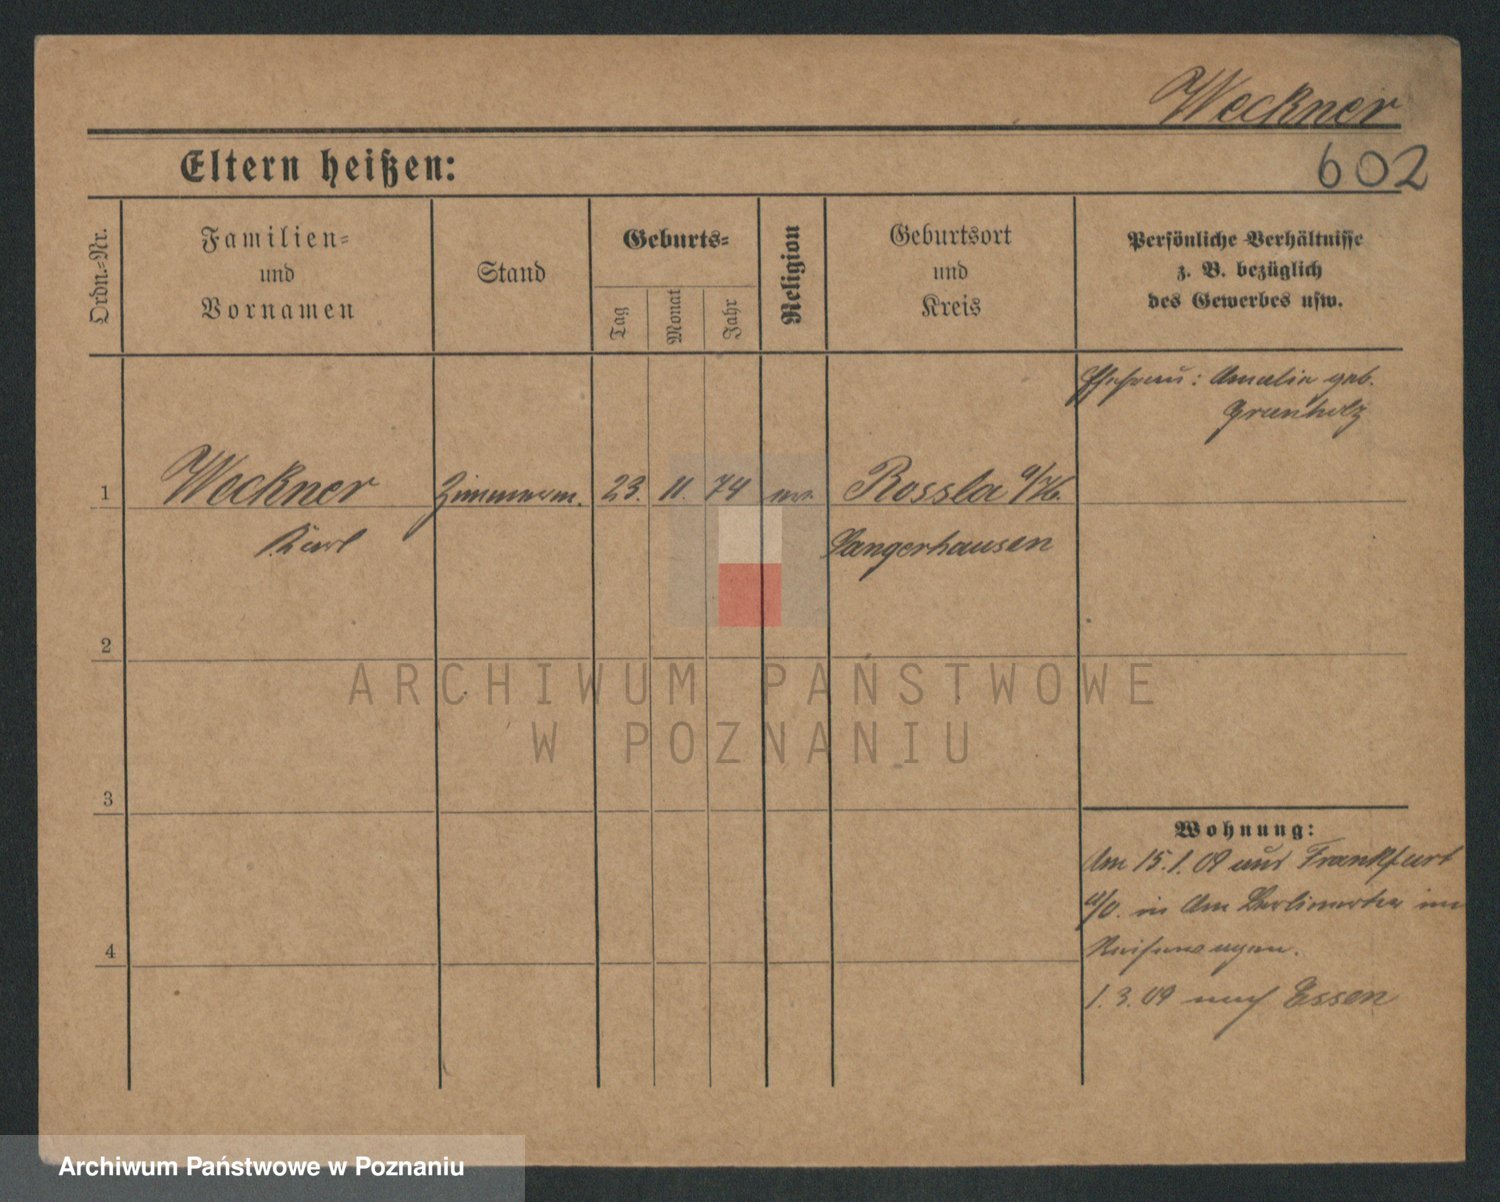 Weckner
Eltern heißen:
602
Ordn.-Nr.
Familien-
und
Vornamen
Stand
Geburts-
Tag
Monat
Jahr
Religion
Geburtsort
und
Kreis
Persönliche Verhältnisse
z. B. bezüglich
des Gewerbes usw.
Ehefrau: Amalie geb.
Grunholz
1 Weckner Zimmerm. 23. 11. 74 ev. Rossla a/H.
Karl Sangerhausen
2
3
4
Wohnung:
Am 15.1.09 aus Frankfurt
a/O. in Am Berlinertor im
Reisewagen.
1.3.09 nach Essen
ARCHIWUM PAŃSTWOWE
W POZNANIU
Archiwum Państwowe w Poznaniu